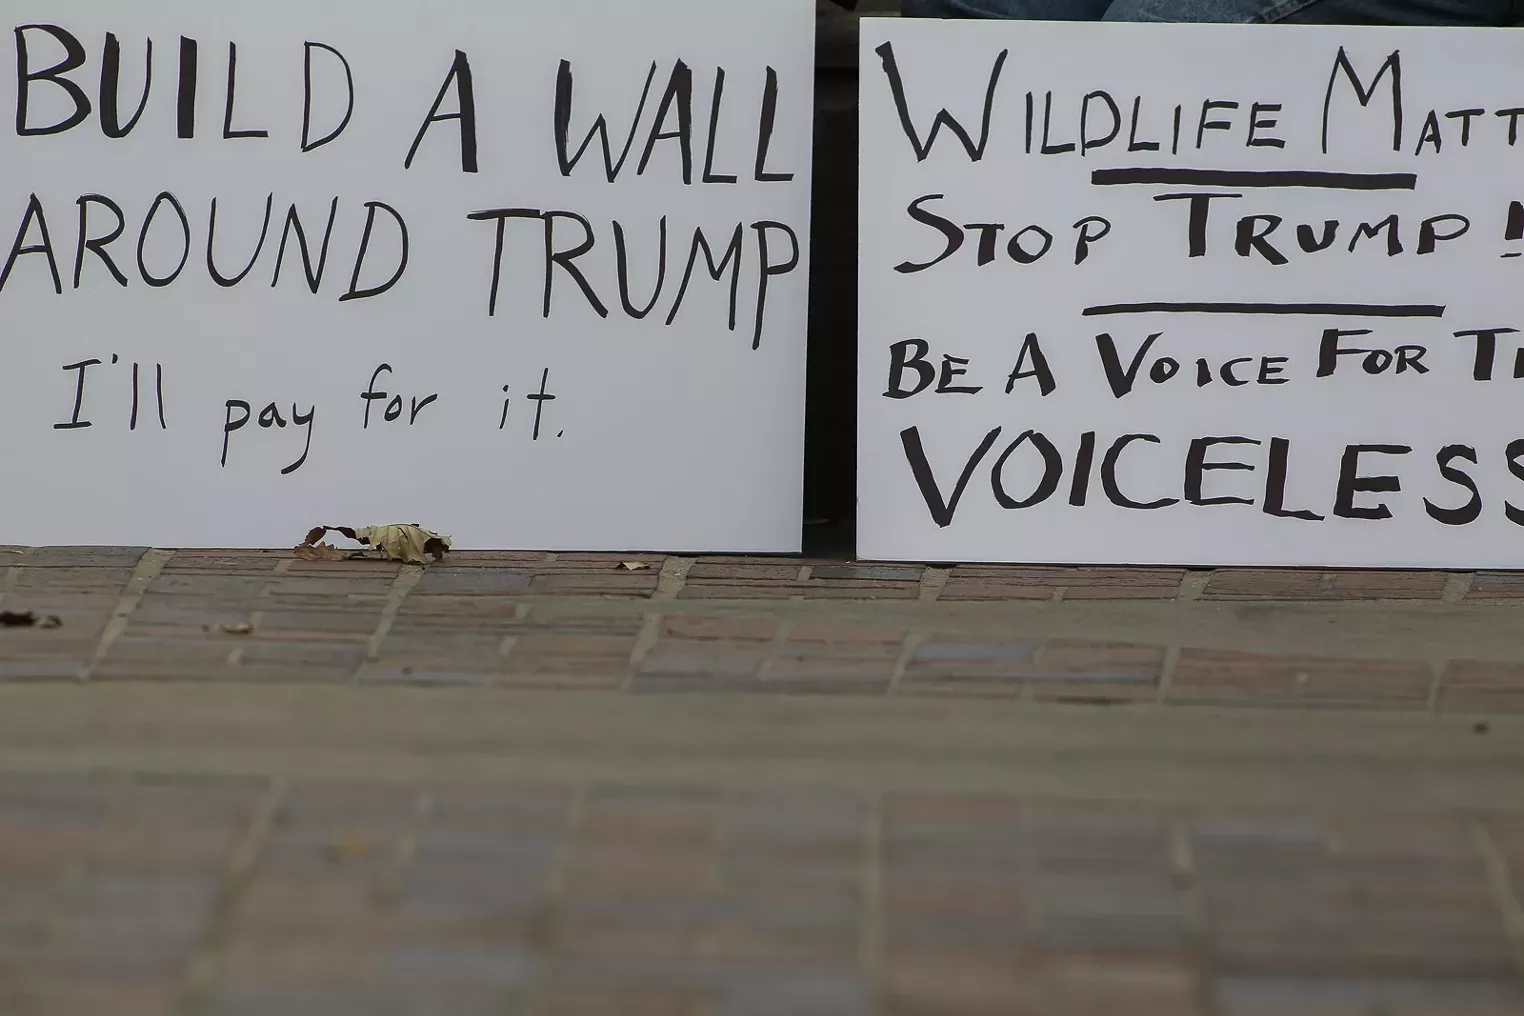 BUILD A WALL
AROUND TRUMP
I'll pay for it.
WILDLIFE MATT
STOP TRUMP!
BE A VOICE FOR
VOICELESS